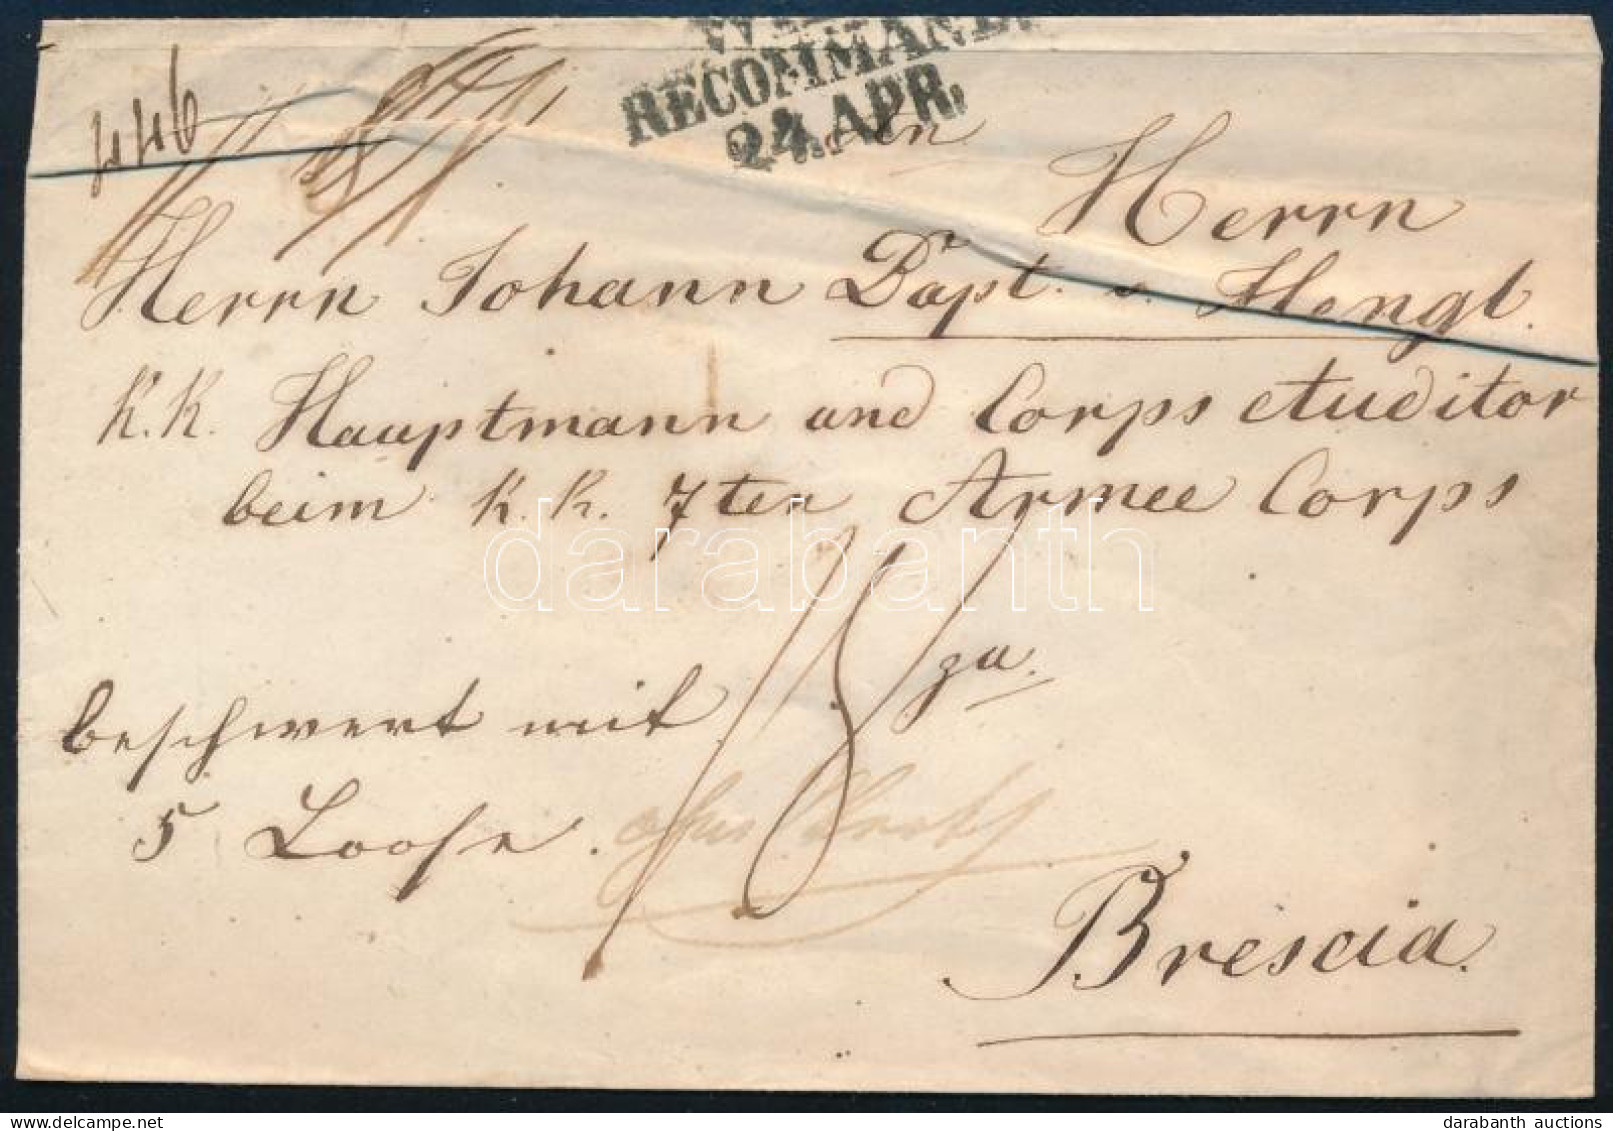 446
RECOMMAND.
24. APR.
Herrn
Herrn Johann Bapt. v. Hengl.
K. K. Hauptmann und Corps Auditor
beim K. K. 7ten Armee Corps
darabanth
zu.
beschwert mit
5 Loose.
Brescia.
darabanth auctions
delcampe.net